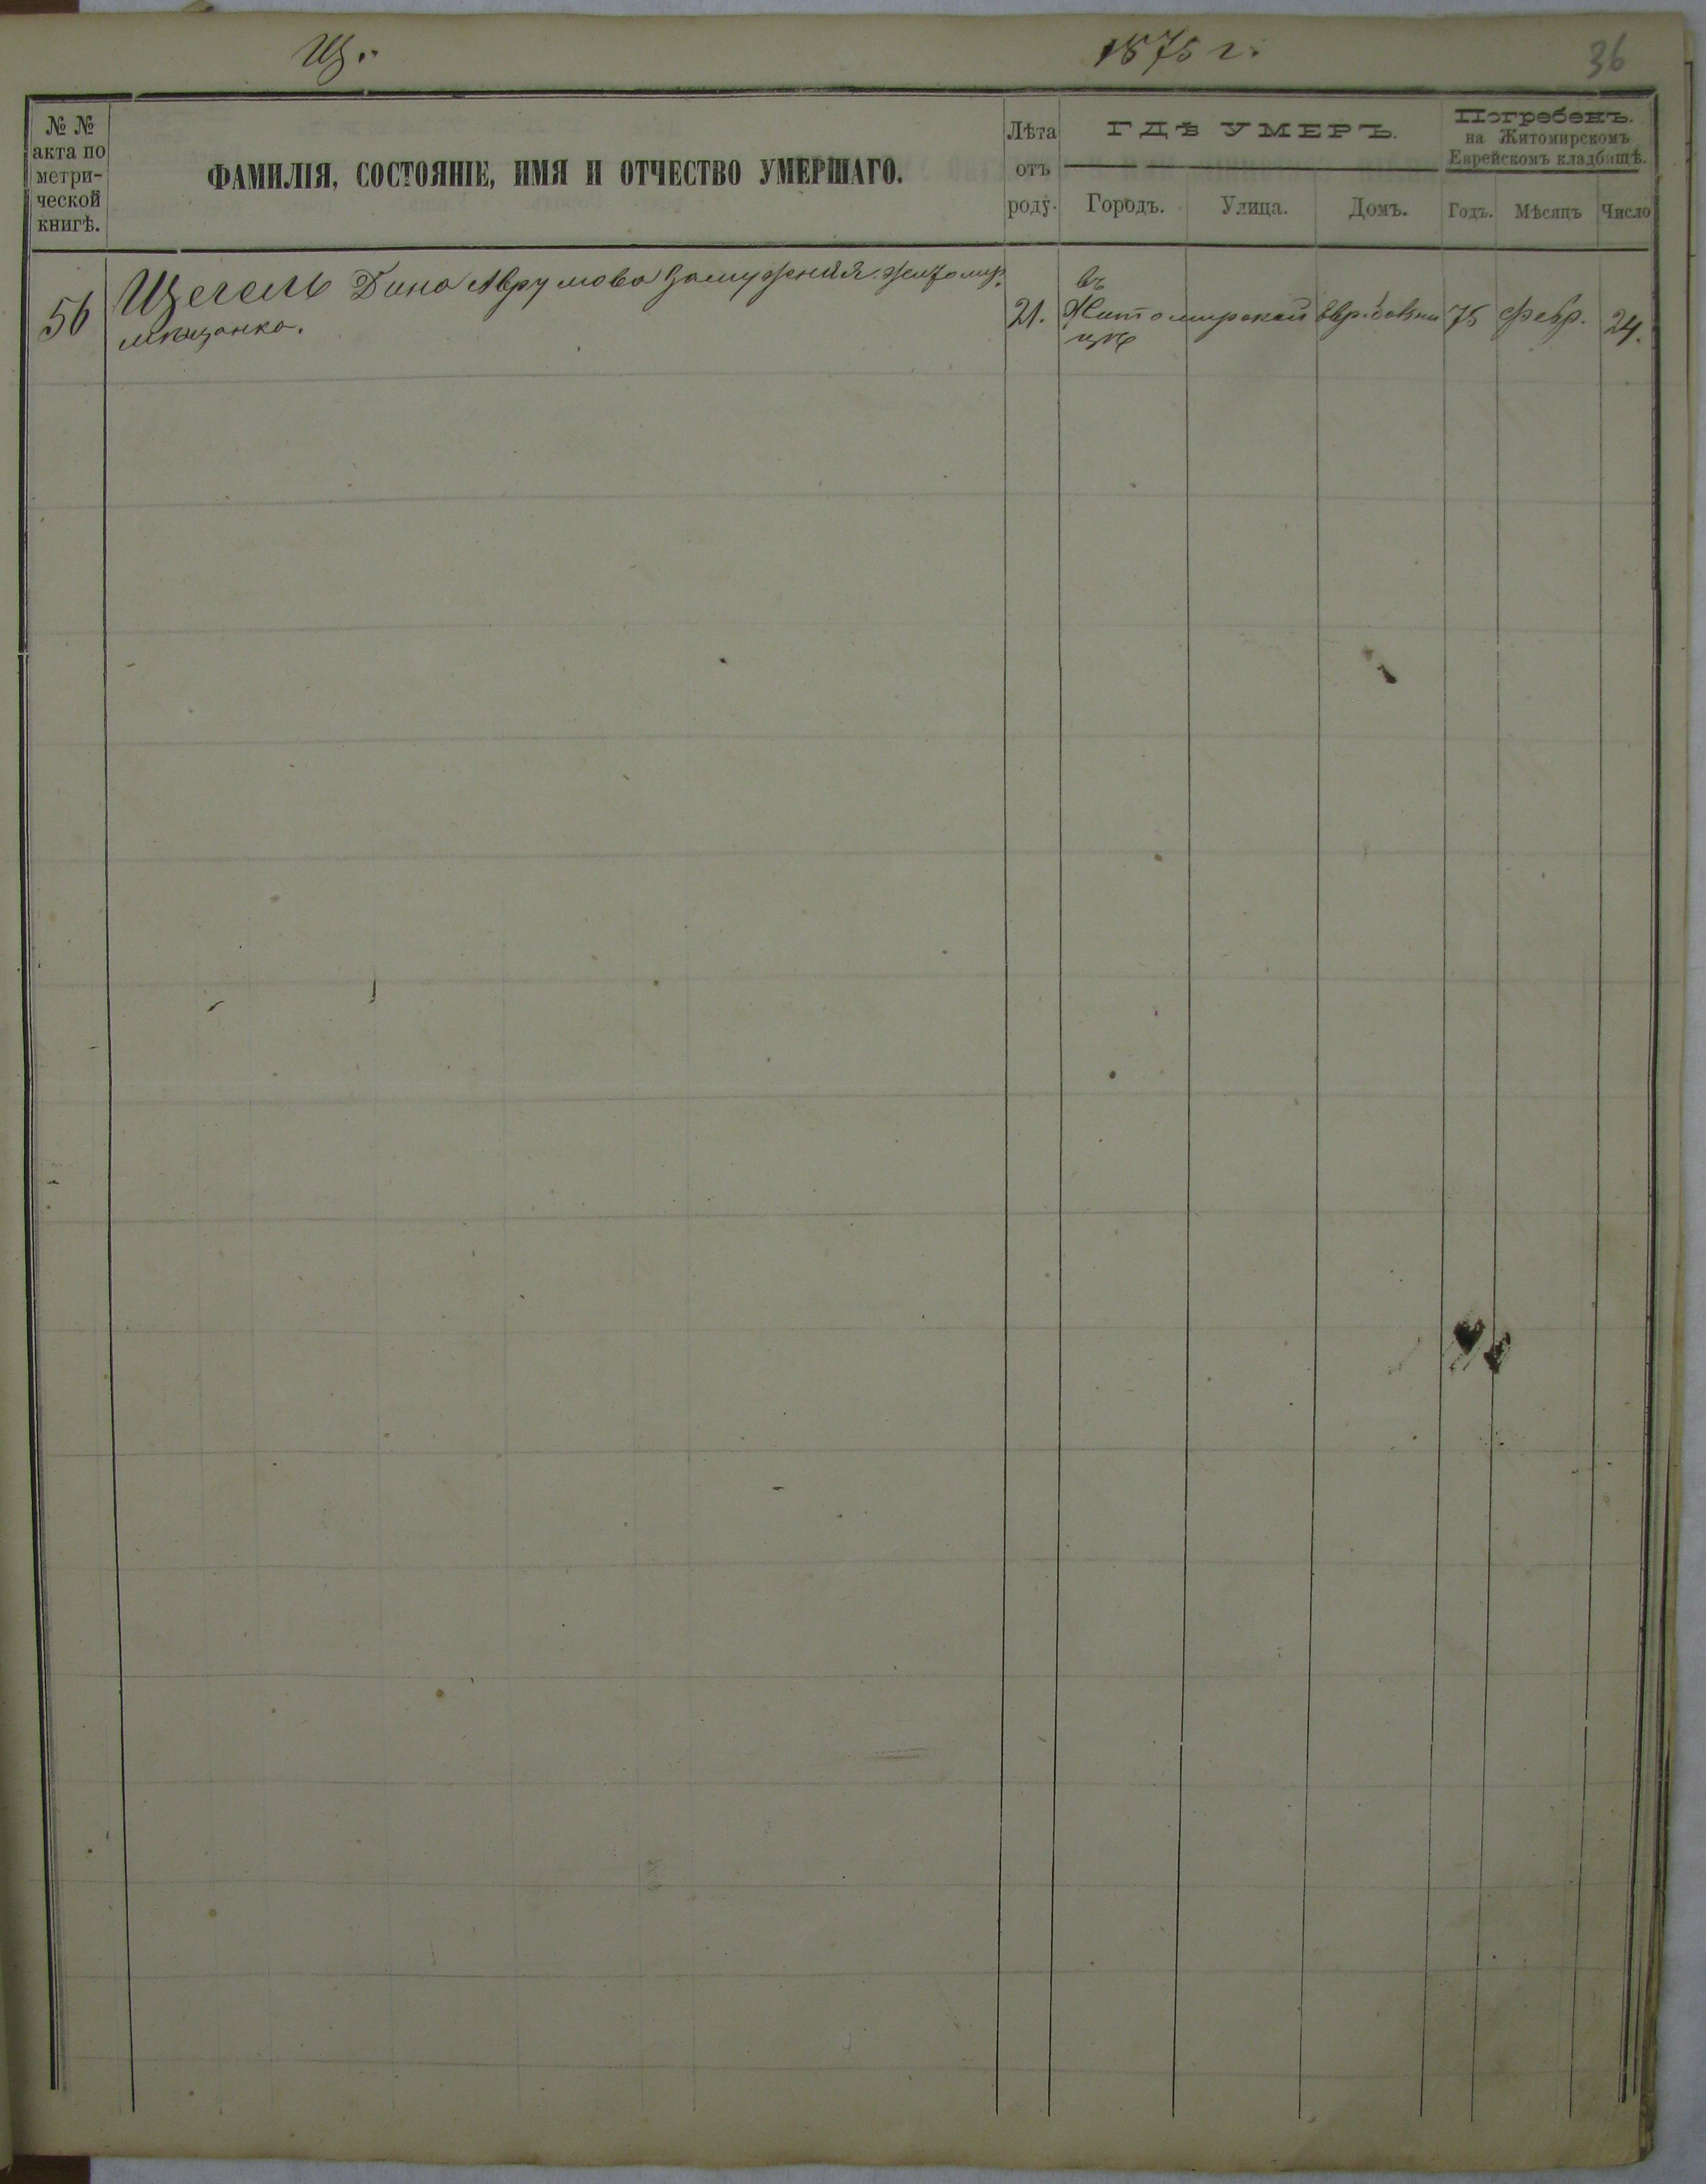 Щ.
1875 г.
36
№ №
акта по
метри-
ческой
книгѣ.
ФАМИЛІЯ, СОСТОЯНІЕ, ИМЯ И ОТЧЕСТВО УМЕРШАГО.
Лѣта
отъ
роду.
ГДѢ УМЕРЪ.
Городъ. Улица. Домъ.
Погребенъ.
на Житомирскомъ
Еврейскомъ кладбищѣ.
Годъ. Мѣсяцъ Число
56
Щегель Дина Аврумова замужняя житомир.
мѣщанка.
21.
въ
Житомирской Евр. больни
цѣ
75 Февр. 24.